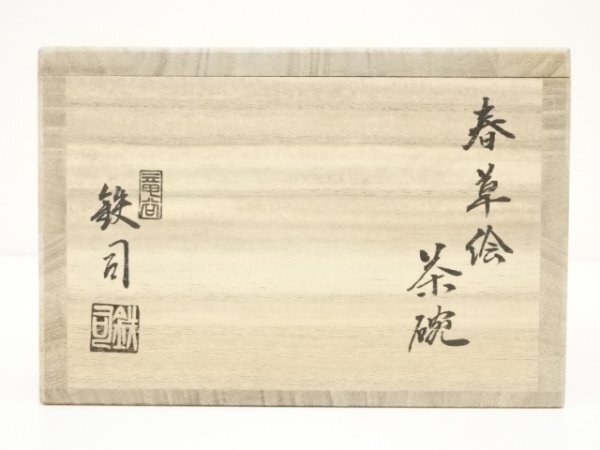 春草絵
茶碗
竜谷
鉄司
鉄司